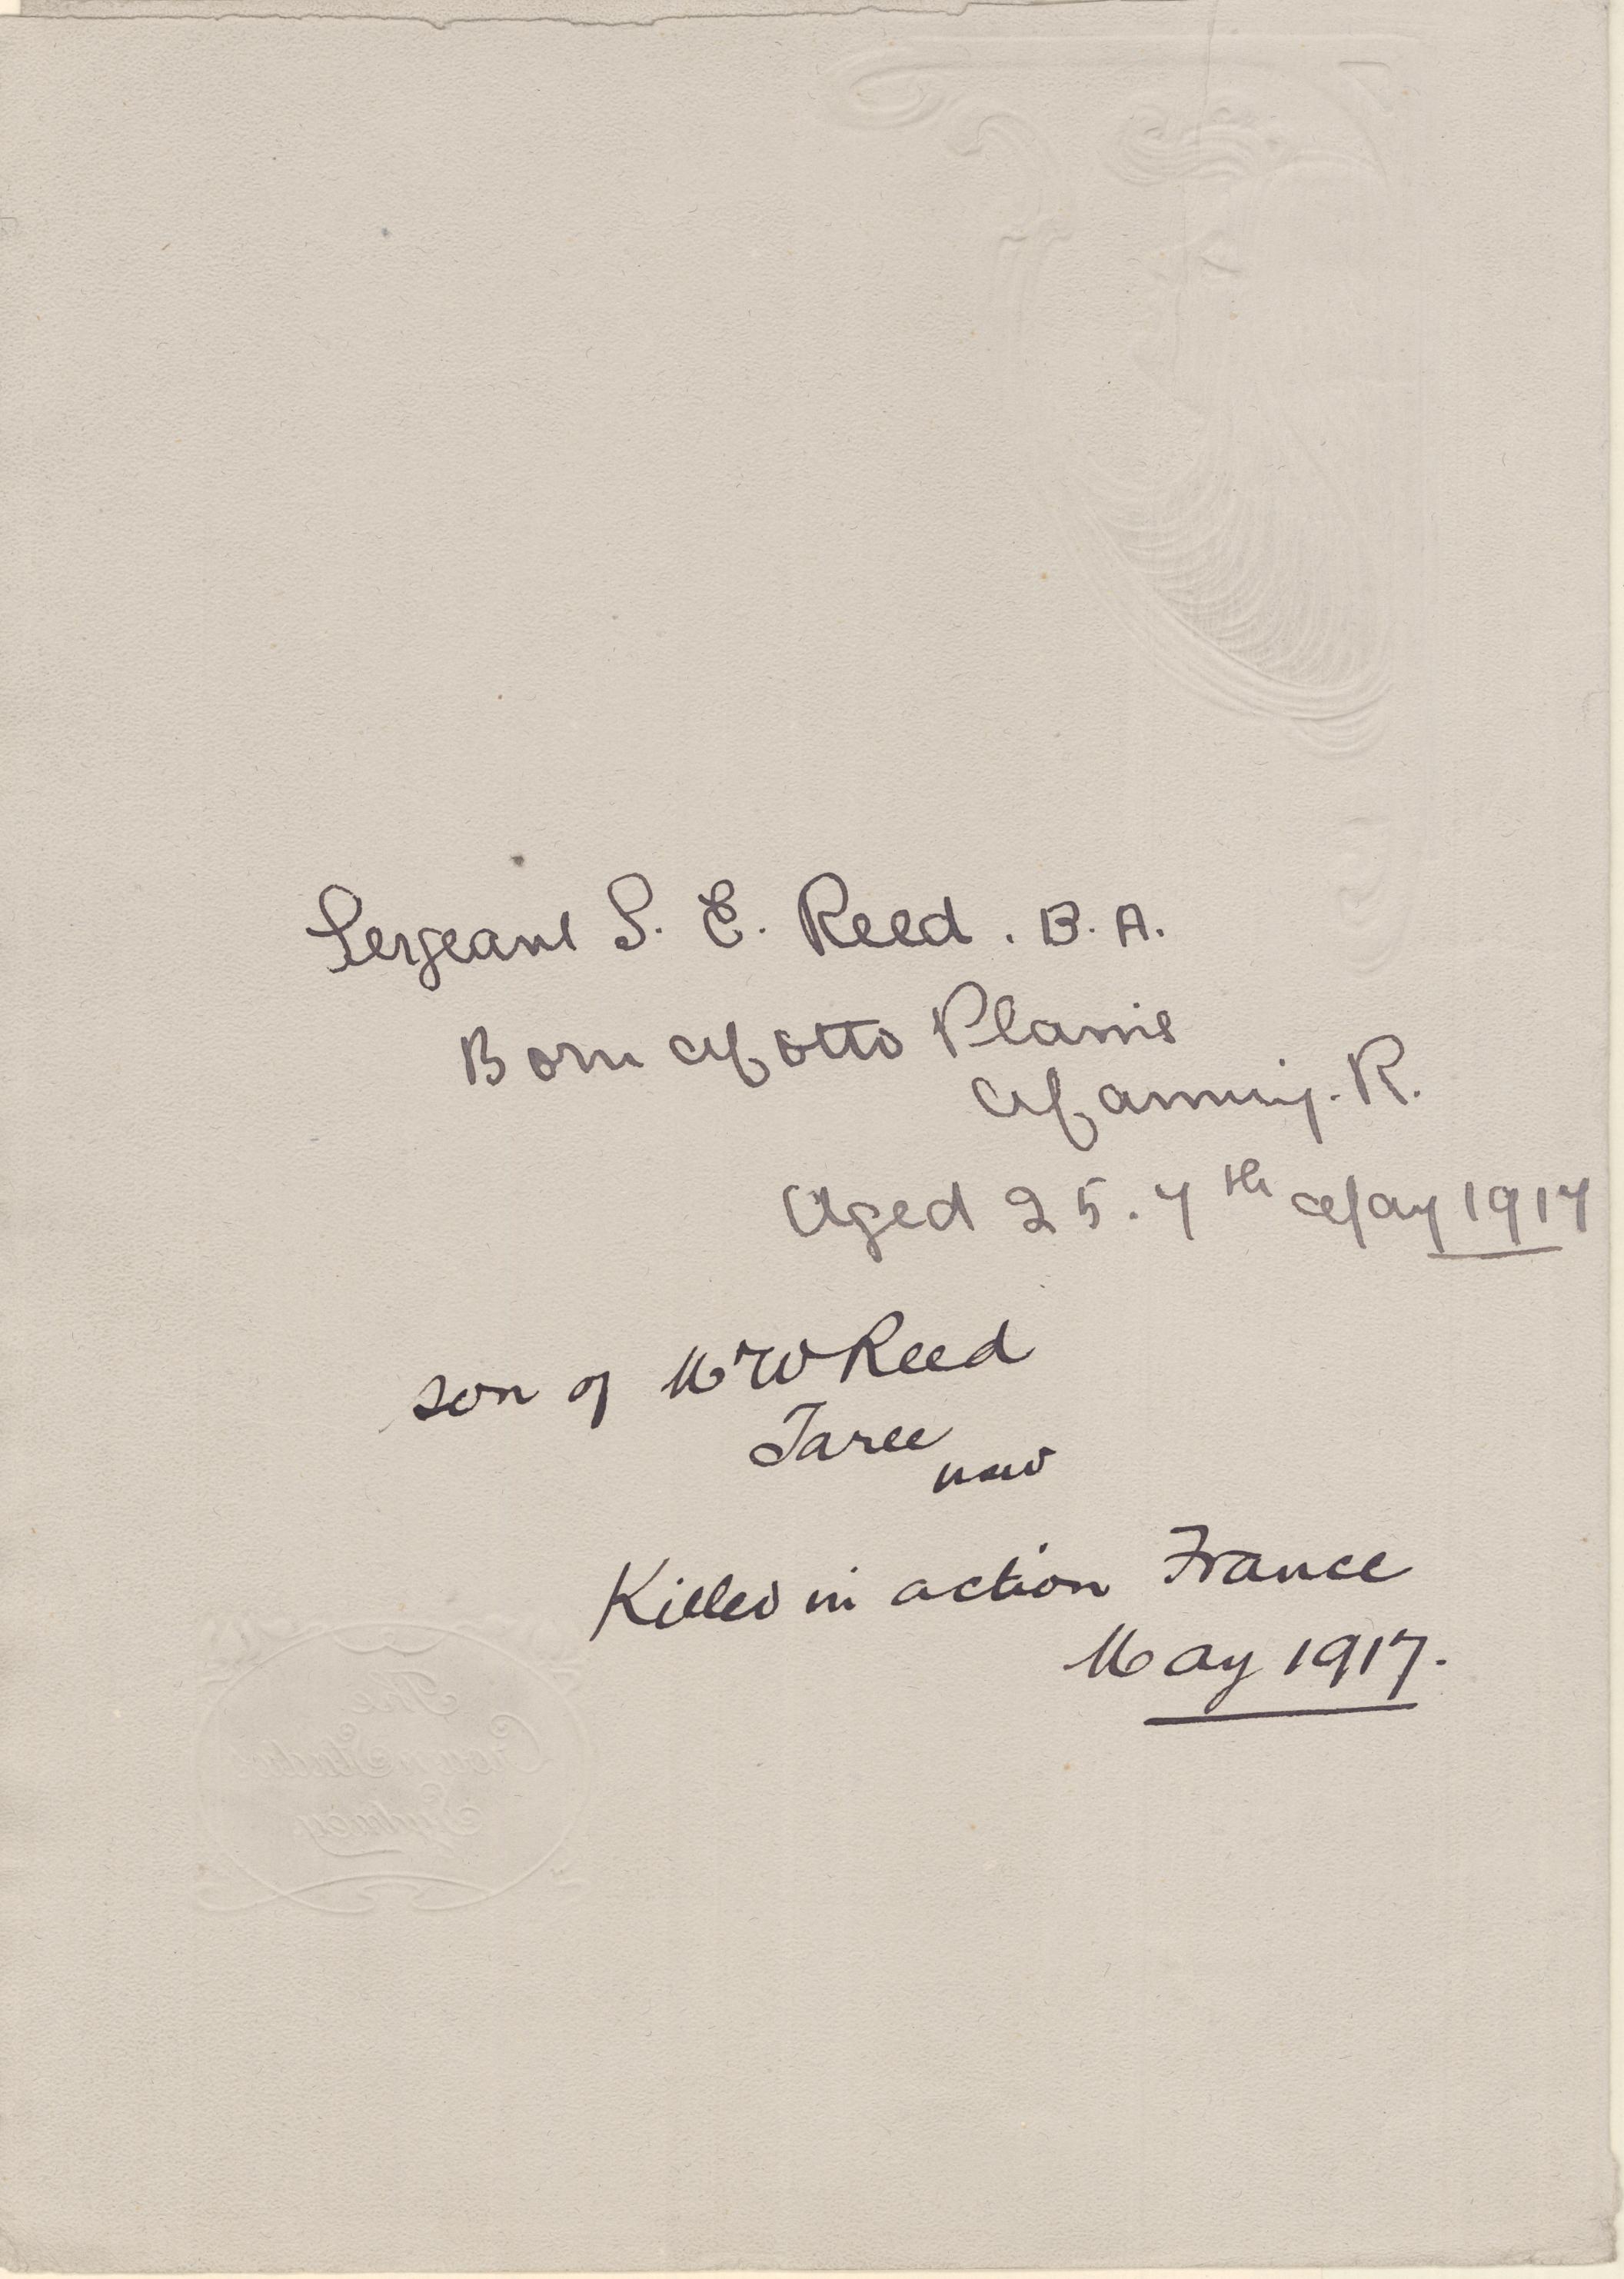 Sergeant S. E. Reed. B.A.
Born Motto Plains
Manning. R.
Aged 25. 7th May 1917
son of Mr W Reed
Taree
NSW
Killed in action France
May 1917.
The
Crown Studios
Sydney